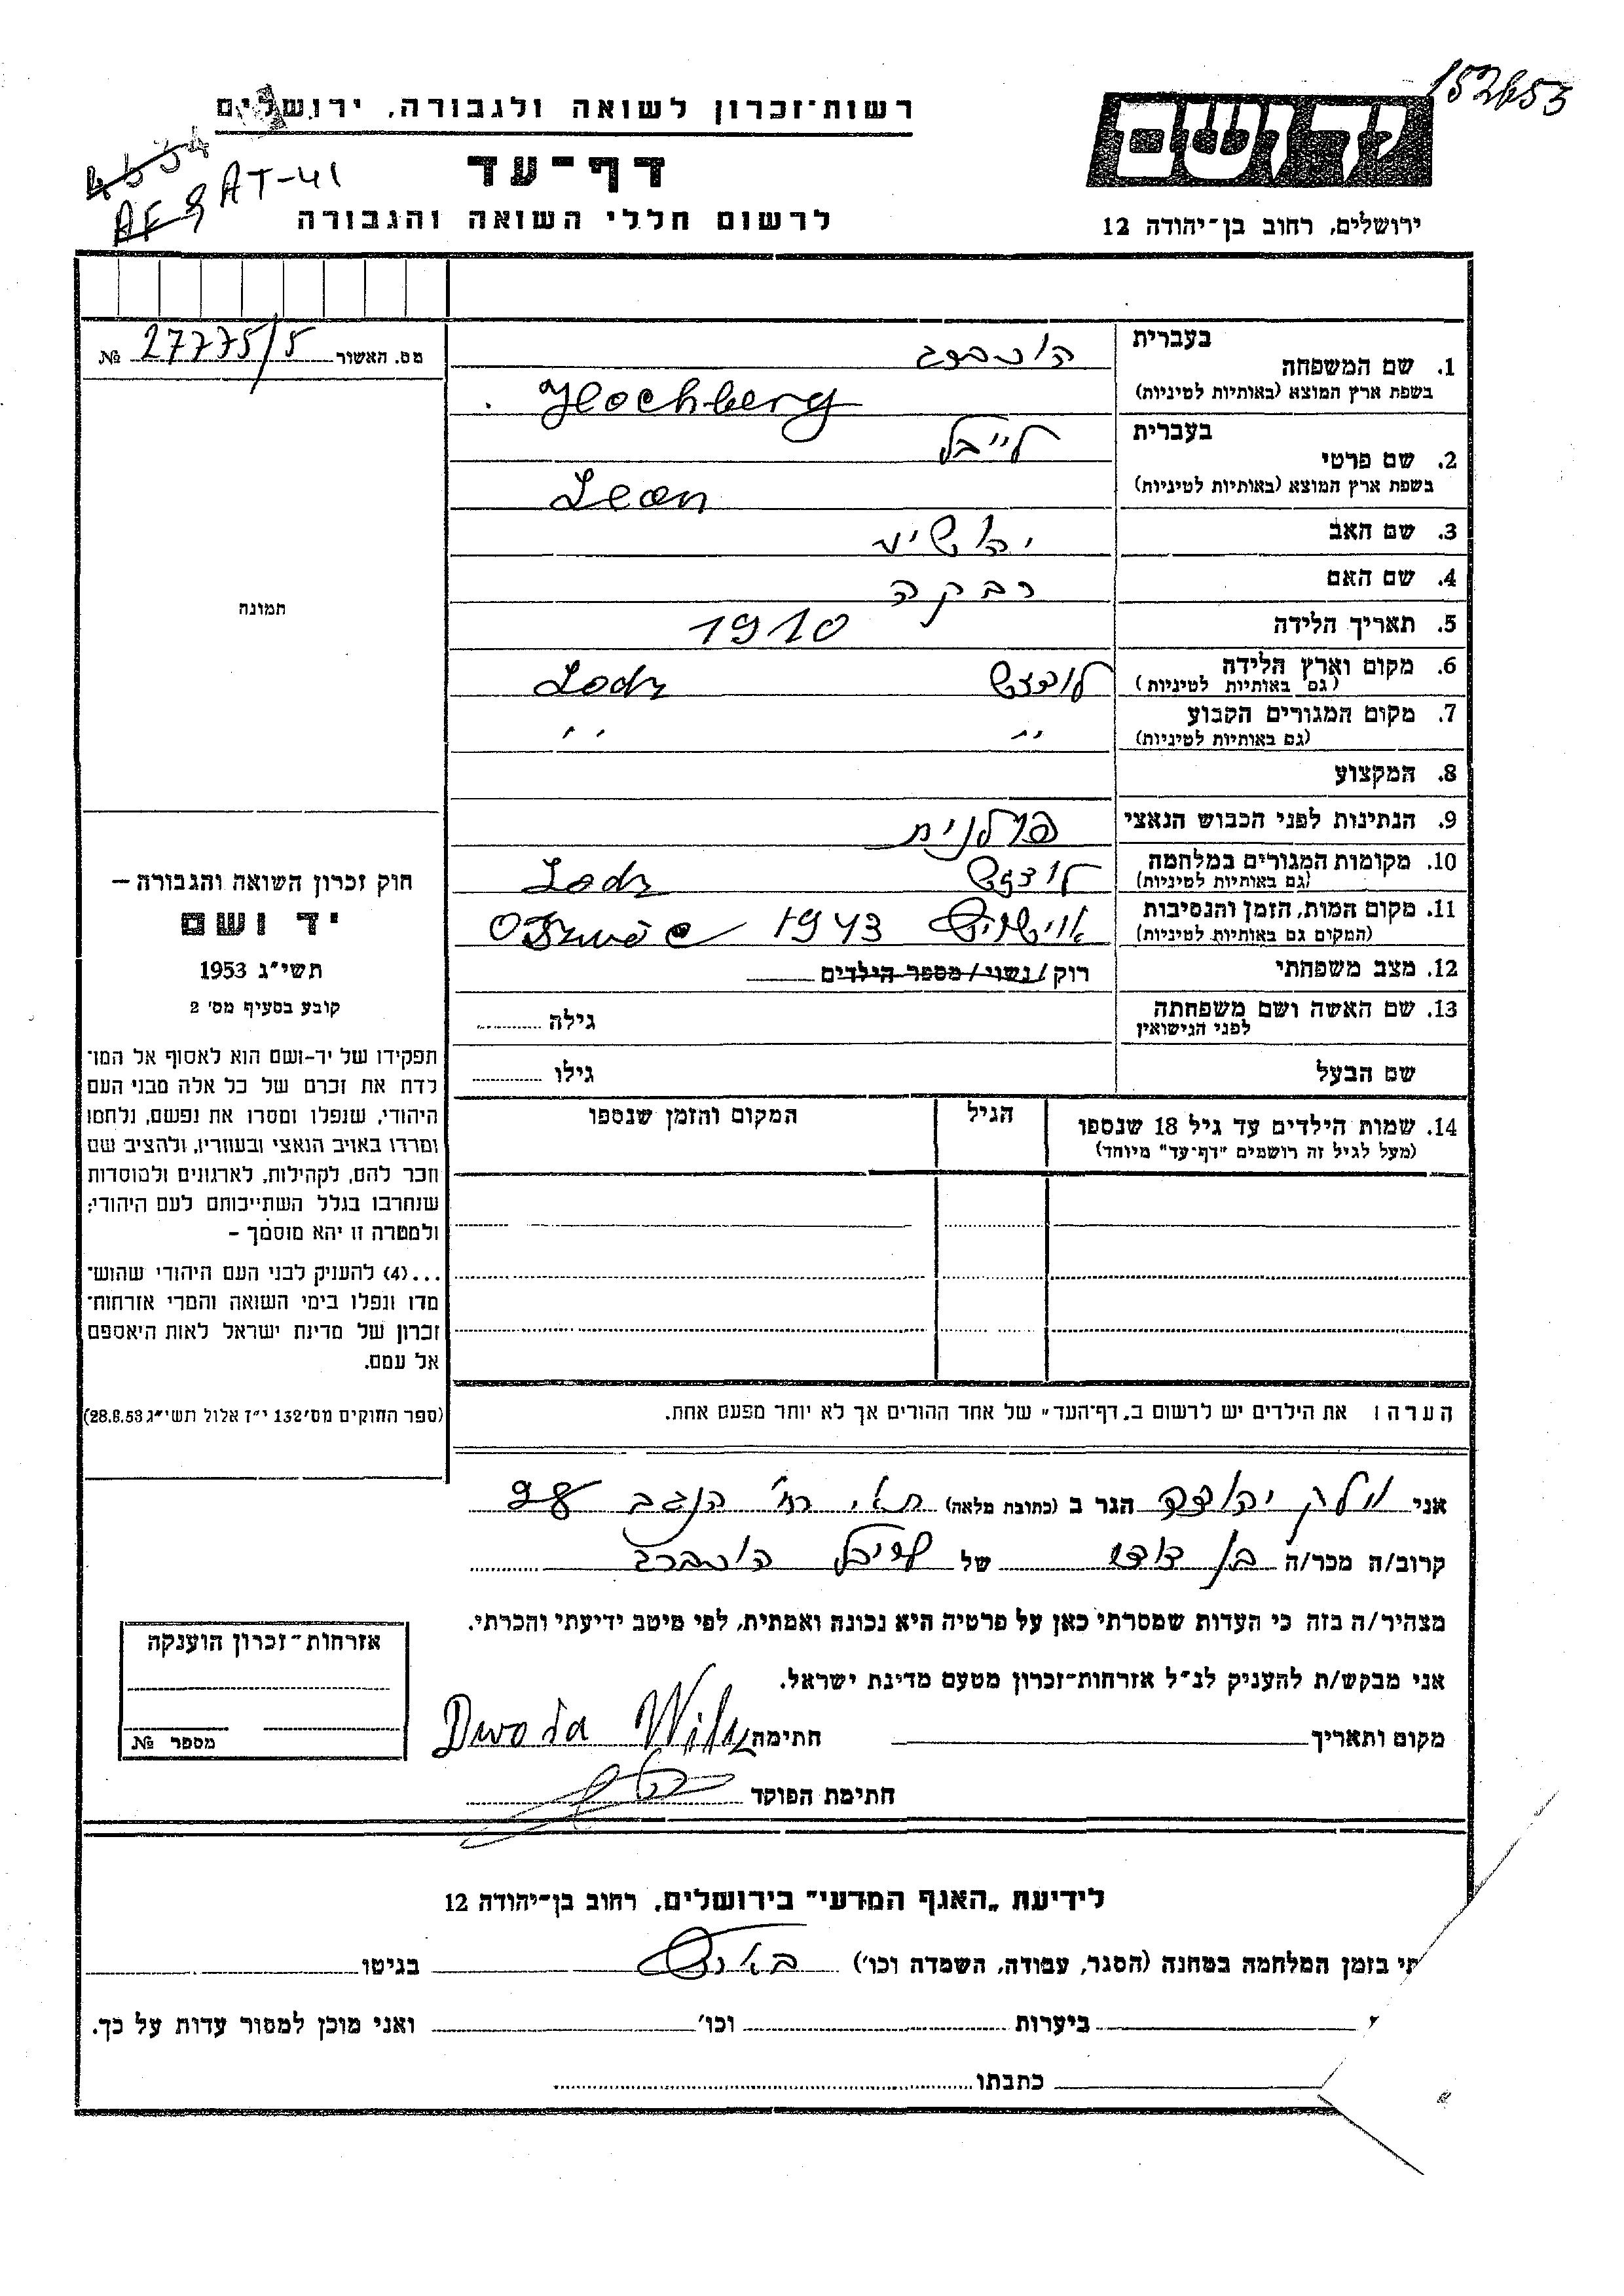 152653
רשות־זכרון לשואה ולגבורה, ירושלים
ידושם
דף־עד
AT-41
לרשום חללי השואה והגבורה
ירושלים, רחוב בן־יהודה 12
מס. האשור 27775/5 №
בעברית
1. שם המשפחה הוכברג
בשפת ארץ המוצא (באותיות לטיניות) Hochberg
בעברית
2. שם פרטי לייבל
בשפת ארץ המוצא (באותיות לטיניות) Leon
3. שם האב יהושע
4. שם האם רבקה
5. תאריך הלידה 1910
6. מקום וארץ הלידה לודז׳ Lodz
(גם באותיות לטיניות)
7. מקום המגורים הקבוע " "
(גם באותיות לטיניות)
8. המקצוע
9. הנתינות לפני הכבוש הנאצי פולנית
10. מקומות המגורים במלחמה לודז׳ Lodz
(גם באותיות לטיניות)
11. מקום המות, הזמן והנסיבות 1943
(המקום גם באותיות לטיניות)
12. מצב משפחתי רוק / נשוי / מספר הילדים
13. שם האשה ושם משפחתה גילה
לפני הנישואין
שם הבעל גילו
14. שמות הילדים עד גיל 18 שנספו הגיל המקום והזמן שנספו
(מעל לגיל זה רושמים "דף־עד" מיוחד)
תמונה
חוק זכרון השואה והגבורה –
יד ושם
תשי"ג 1953
קובע בסעיף מס' 2
תפקידו של יד-ושם הוא לאסוף אל המו־
לדת את זכרם של כל אלה מבני העם
היהודי, שנפלו ומסרו את נפשם, נלחמו
ומרדו באויב הנאצי ובעוזריו, ולהציב שם
וזכר להם, לקהילות, לארגונים ולמוסדות
שנחרבו בגלל השתייכותם לעם היהודי;
ולמטרה זו יהא מוסמך –
...(4) להעניק לבני העם היהודי שהוש־
מדו ונפלו בימי השואה והמרי אזרחות־
זכרון של מדינת ישראל לאות היאספם
אל עמם.
(ספר החוקים מס' 132 י"ז אלול תשי"ג 28.8.53)
הערה: את הילדים יש לרשום ב„דף־העד" של אחד ההורים אך לא יותר מפעם אחת.
אני הגר ב (כתובת מלאה) ת״א, רח׳ הנגב
קרוב/ה מכר/ה בן דודו של לייבל הוכברג
מצהיר/ה בזה כי העדות שמסרתי כאן על פרטיה היא נכונה ואמתית, לפי מיטב ידיעתי והכרתי.
אני מבקש/ת להעניק לנ"ל אזרחות־זכרון מטעם מדינת ישראל.
מקום ותאריך חתימה Dwora Wilk
חתימת הפוקד
אזרחות־זכרון הוענקה
מספר №
לידיעת „האגף המדעי" בירושלים, רחוב בן־יהודה 12
תי בזמן המלחמה במחנה (הסגר, עבודה, השמדה וכו') בגיטו
ביערות וכו' ואני מוכן למסור עדות על כך.
כתבתו